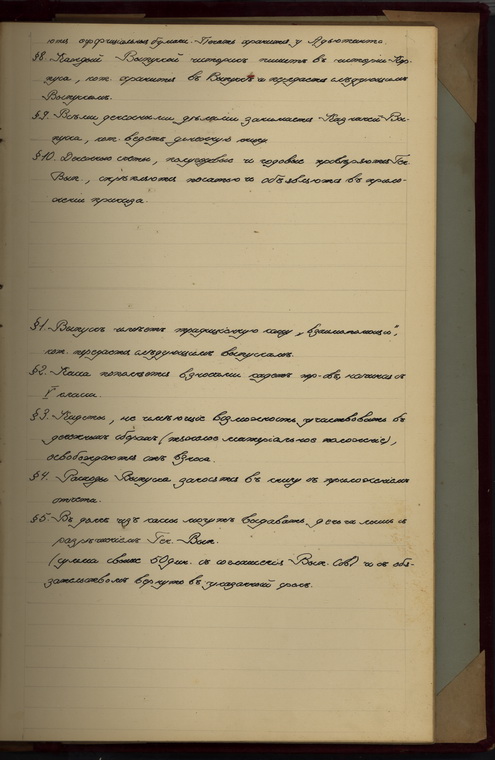 ются оффицiальныя бумаги. Печать хранится у Адъютанта.
§8. Каждый Выпускной историкъ пишетъ въ исторiю Кор-
пуса, кот. хранится въ Выпускѣ и передается слѣдующимъ
Выпускамъ.
§9. Всѣми денежными дѣлами занимается Казначей Вы-
пуска, кот. ведетъ денежную книгу.
§10. Денежные счеты, полугодовые и годовые провѣряются Ген.
Вып., скрѣпляются печатью и объявляются въ прило-
женiи приказа.
§1. Выпускъ имѣетъ традицiонную кассу „взаимопомощи",
кот. передается слѣдующимъ выпускамъ.
§2. Касса пополняется взносами кадетъ пр-въ, начиная съ
V класса.
§3. Кадеты, не имѣющiе возможность участвовать въ
денежныхъ сборахъ (тяжелое матерiальное положенiе),
освобождаются отъ взноса.
§4. Расходы Выпуска заносятся въ книгу съ приложенiемъ
отчета.
§5. Въ долгъ изъ кассы могутъ выдавать деньги лишь съ
разрѣшенiемъ Ген. Вып.
(сумма свыше 50 дин. съ соглашенiя Вып. Сов.) и съ обя-
зательствомъ вернуть въ указанный срокъ.